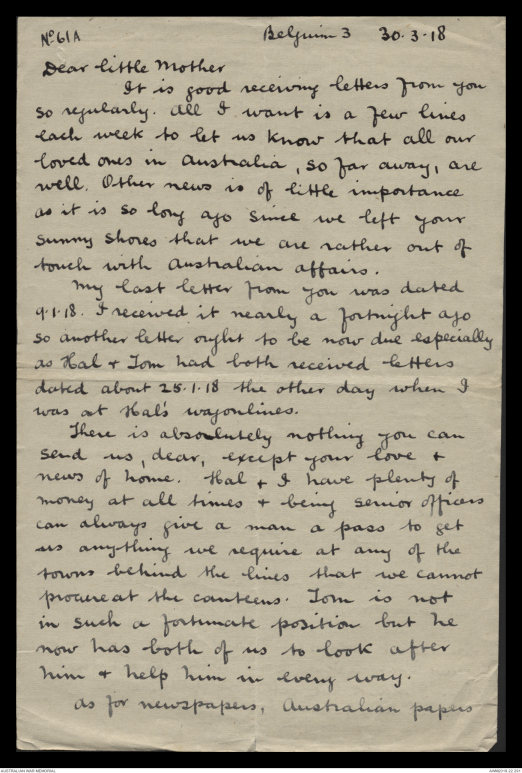 Nº 61A Belgium 3 30.3.18
Dear little Mother
It is good receiving letters from you
so regularly. All I want is a few lines
each week to let us know that all our
loved ones in Australia, so far away, are
well. Other news is of little importance
as it is so long ago since we left your
sunny shores that we are rather out of
touch with Australian affairs.
My last letter from you was dated
9.1.18. I received it nearly a fortnight ago
so another letter ought to be now due especially
as Hal & Tom had both received letters
dated about 25.1.18 the other day when I
was at Hal's wagonlines.
There is absolutely nothing you can
send us, dear, except your love &
news of home. Hal & I have plenty of
money at all times & being senior officers
can always give a man a pass to get
us anything we require at any of the
towns behind the lines that we cannot
procure at the canteens. Tom is not
in such a fortunate position but he
now has both of us to look after
him & help him in every way.
As for newspapers, Australian papers
AUSTRALIAN WAR MEMORIAL